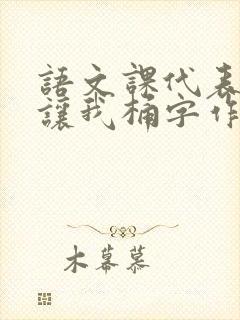 語文課代表
讓我桶字作
木幕慕